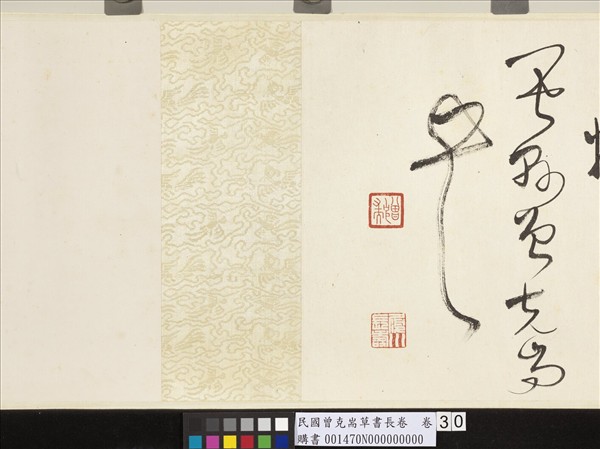 閩縣曾克耑
民國曾克耑草書長卷 卷 30
購書 001470N000000000